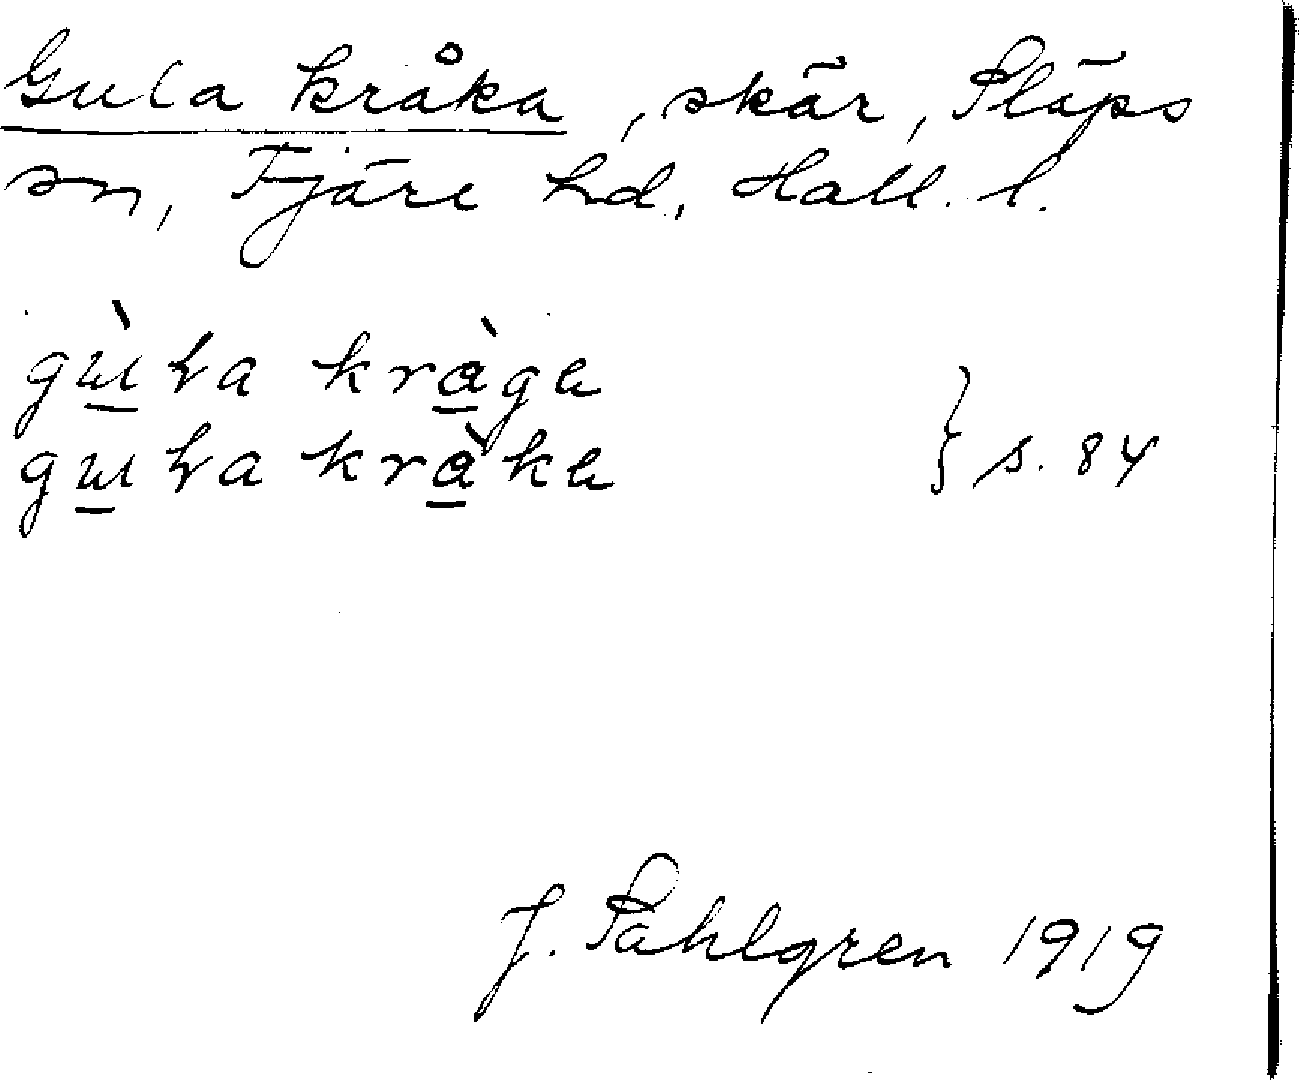 Gula kråka, skär, Släps
sn, Fjäre hd, Hall. l.
gùɯɽa kràga
guɯɽa kràka } s. 84
J. Sahlgren 1919